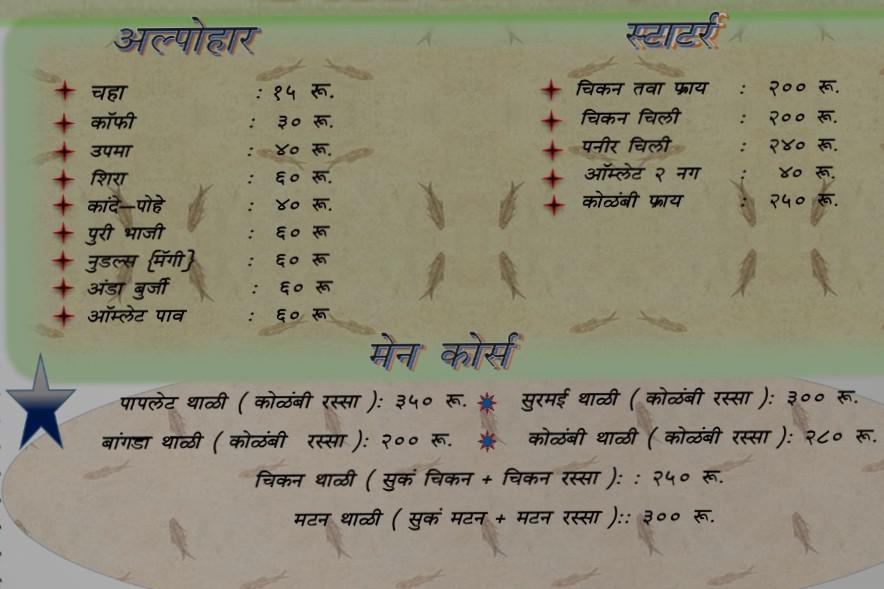 अल्पोहार
चहा : १५ रू.
कॉफी : ३० रू.
उपमा : ४० रू.
शिरा : ६० रू.
कांदे–पोहे : ४० रू.
पुरी भाजी : ६० रू
नुडल्स {मॅगी} : ६० रू
अंडा बुर्जी : ६० रू
ऑम्लेट पाव : ६० रू
स्टाटर्र
चिकन तवा फ्राय : २०० रू.
चिकन चिली : २०० रू.
पनीर चिली : २४० रू.
ऑम्लेट २ नग : ४० रू.
कोळंबी फ्राय : २५० रू.
मेन कोर्स
पापलेट थाळी ( कोळंबी रस्सा ): ३५० रू. सुरमई थाळी ( कोळंबी रस्सा ): ३०० रू.
बांगडा थाळी ( कोळंबी रस्सा ): २०० रू. कोळंबी थाळी ( कोळंबी रस्सा ): २८० रू.
चिकन थाळी ( सुकं चिकन + चिकन रस्सा ): : २५० रू.
मटन थाळी ( सुकं मटन + मटन रस्सा ):: ३०० रू.